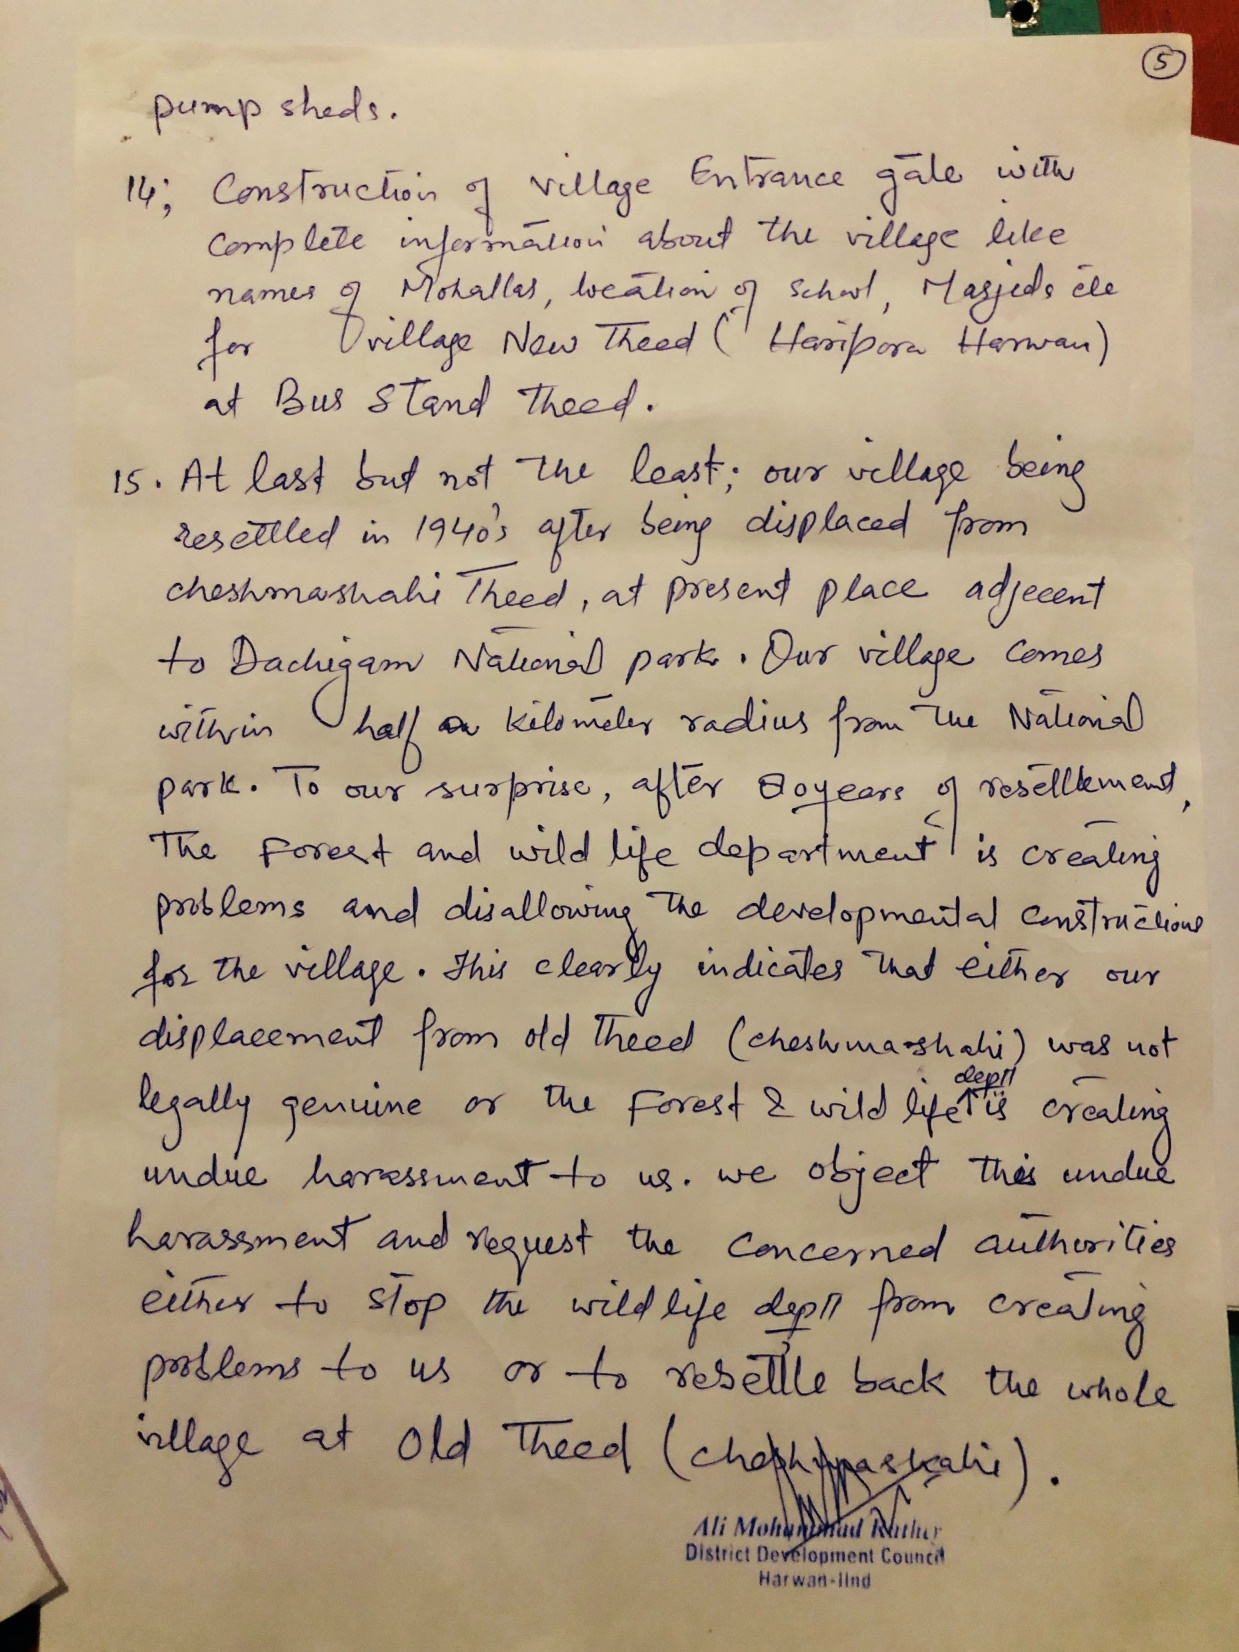 5
pump sheds.
14; Construction of village Entrance gate with
complete information about the village like
names of Mohallas, location of School, Masjids etc
for village New Theed (Haripora Harwan)
at Bus Stand Theed.
15. At last but not the least; our village being
resettled in 1940's after being displaced from
cheshmashahi Theed, at present place adjecent
to Dachigam National park. Our village comes
within half a kilometer radius from the National
park. To our surprise, after 80 years of resettlement,
The Forest and wild life department is creating
problems and disallowing the developmental constructions
for the village. This clearly indicates that either our
displacement from old Theed (cheshma-shahi) was not
legally genuine or the Forest & wild life deptt is creating
undue harassment to us. we object this undue
harassment and request the concerned authorities
either to stop the wild life deptt from creating
problems to us or to resettle back the whole
village at Old Theed (cheshmashahi).
Ali Mohammad Rather
District Development Council
Harwan-IInd